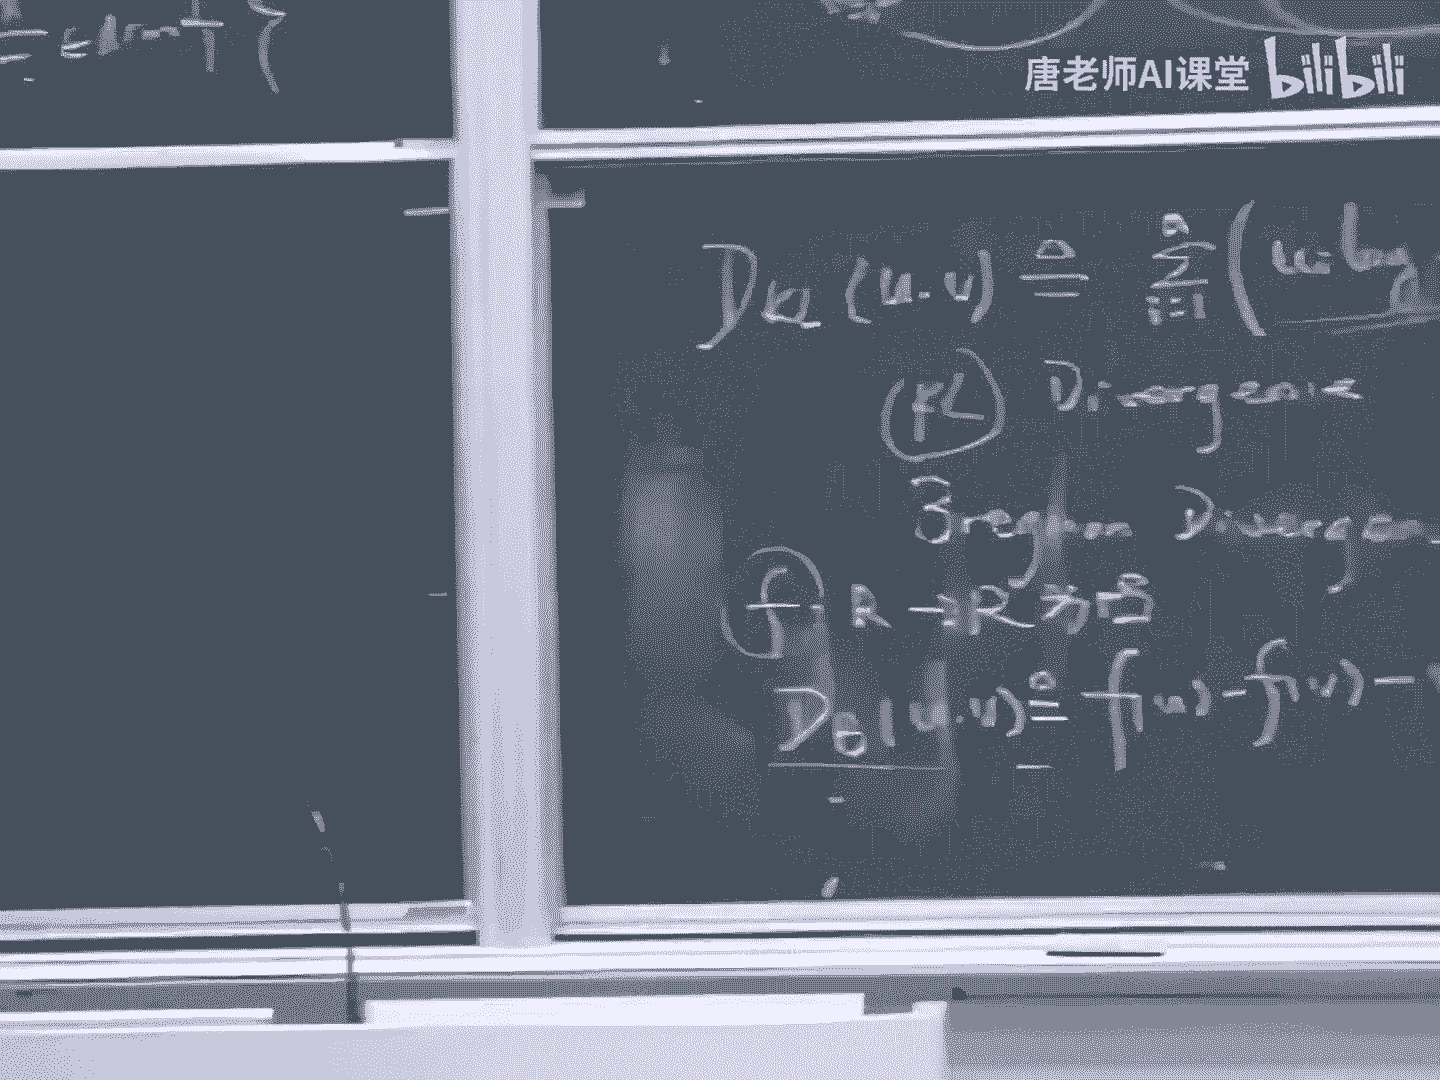 唐老师AI课堂 bilibili
D_KL (u.v) ≜ Σ_{i=1}^{n} ( u_i log
(KL) Divergence
Bregman Divergen
f: R → R 为凸
D_B (u.v) ≜ f(u) - f(v) -